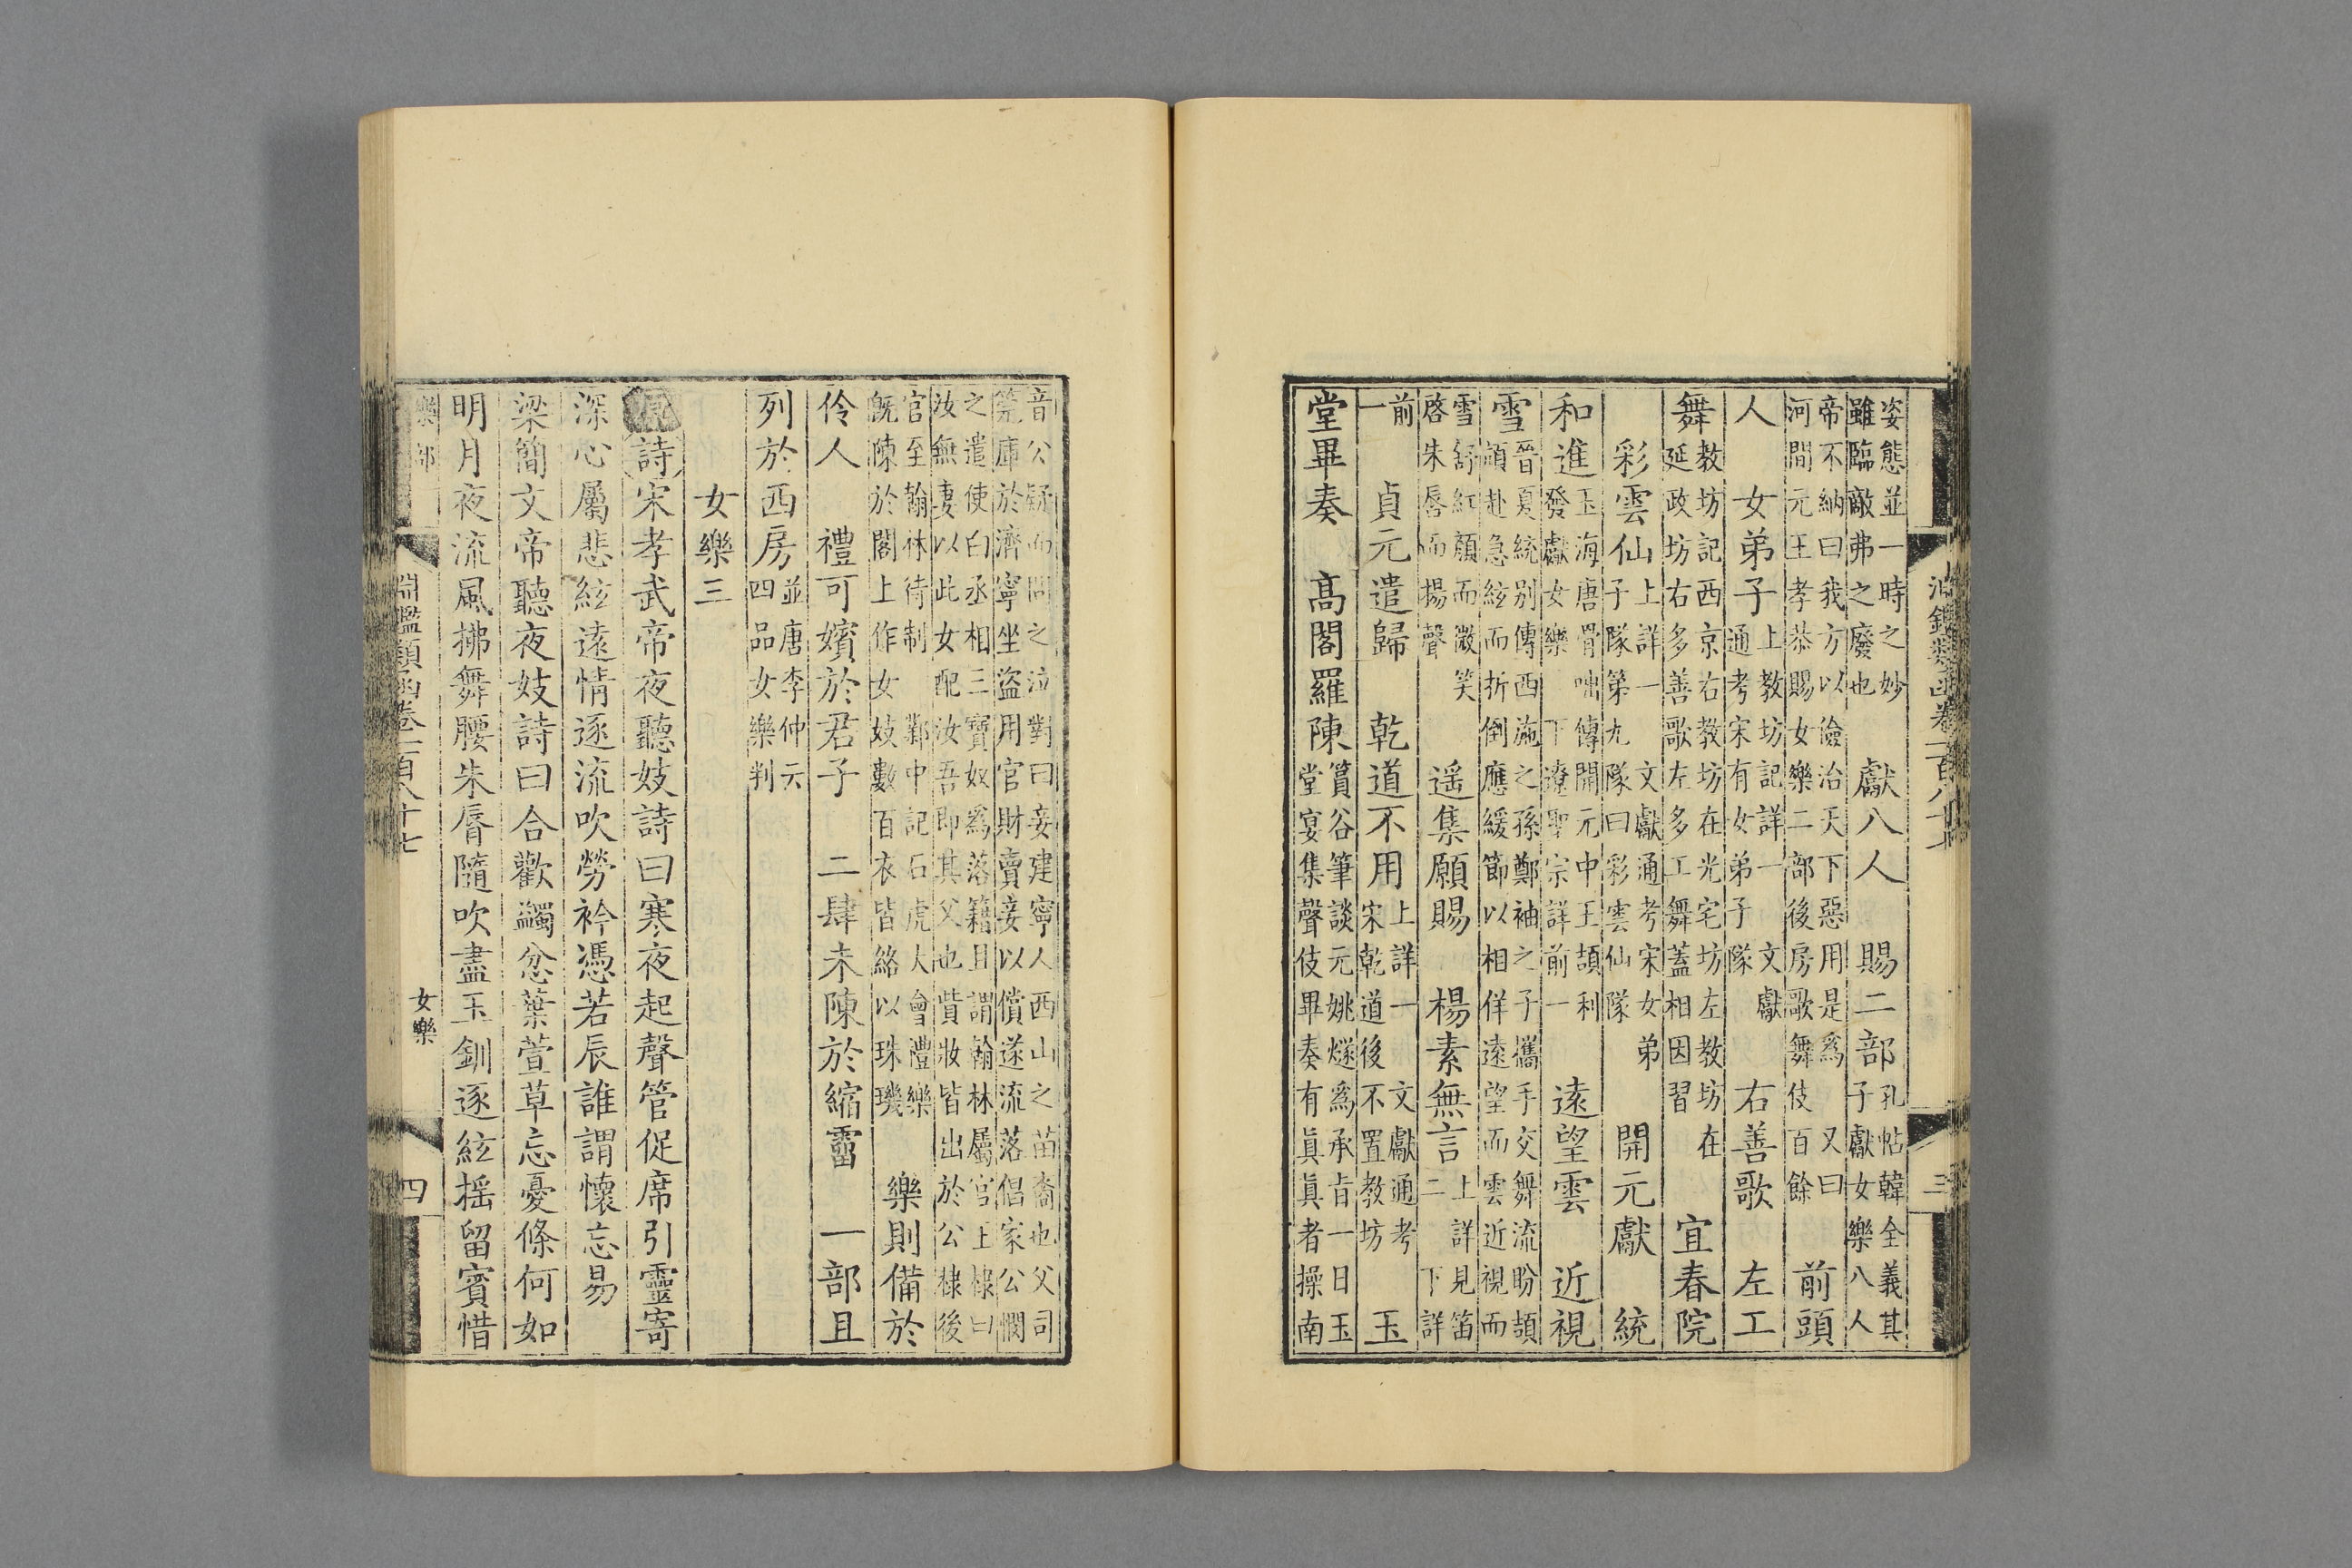 姿態並一時之妙
雖臨敵弗之廢也 獻八人 賜二部 孔帖韓全義其
子獻女樂八人
帝不納曰我方以儉治天下惡用是爲 又曰
河間元王孝恭賜女樂二部後房歌舞伎百餘 前頭
人 女弟子 上教坊記詳一 文獻
通考宋有女弟子隊 右善歌 左工
舞 教坊記西京右教坊在光宅坊左教坊在
延政坊右多善歌左多工舞蓋相因習 宜春院
彩雲仙 上詳一 文獻通考宋女弟
子隊第九隊曰彩雲仙隊 開元獻 統
和進 玉海唐骨咄傳開元中王頡利
發獻女樂 下遼聖宗詳前一 遠望雲 近視
雪 晉夏統别傳西施之孫鄭袖之子攜手交舞流盼頡
頏赴急絃而折倒應緩節以相佯遠望而雲近視而
雪舒紅顔而微笑
啓朱唇而揚聲 遥集願賜 楊素無言 上詳見笛
二 下詳
前
一 貞元遣歸 乾道不用 上詳一 文獻通考
宋乾道後不置教坊 玉
堂畢奏 高閣羅陳 篔谷筆談元姚燧爲承旨一日玉
堂宴集聲伎畢奏有眞眞者操南
三
音公疑而問之泣對曰妾建寧人西山之苗裔也父司
筦庫於濟寧坐盜用官財賣妾以償遂流落倡家公憫
之遣使白丞相三寶奴爲落籍且謂翰林屬官王棣曰
汝無妻以此女配汝吾即其父也貲妝皆出於公棣後
官至翰林待制 鄴中記石虎大會禮樂
既陳於閣上作女妓數百衣皆絡以珠璣 樂則備於
伶人 禮可嬪於君子 二肆未陳於縮霤 一部且
列於西房 並唐李仲云
四品女樂判
女樂三
詩宋孝武帝夜聽妓詩曰寒夜起聲管促席引靈寄
深心屬悲絃遠情逐流吹勞衿憑若辰誰謂懷忘易
梁簡文帝聽夜妓詩曰合歡蠲忿葉萱草忘憂條何如
明月夜流風拂舞腰朱脣隨吹盡玉釧逐絃揺留賓惜
樂部 淵鑑類函卷一百八十七 女樂 四